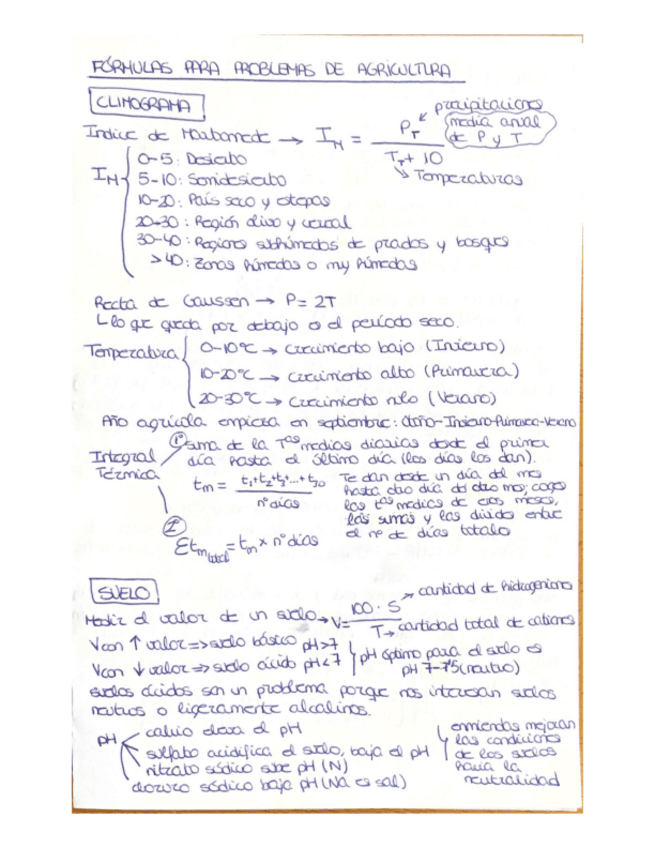 FÓRMULAS PARA PROBLEMAS DE AGRICULTURA
CLIMOGRAMA
precipitaciones
media anual de P y T
Indice de Martonne → I_M = P_T / (T_T + 10)
Temperaturas
I_M
0-5: Desierto
5-10: Semidesierto
10-20: País seco y estepas
20-30: Región olivo y cereal
30-40: Regiones subhúmedas de prados y bosques
>40: Zonas húmedas o muy húmedas
Recta de Gaussen → P = 2T
lo que queda por debajo es el período seco.
Temperatura
0-10ºC → crecimiento bajo (Invierno)
10-20ºC → crecimiento alto (Primavera)
20-30ºC → crecimiento nulo (Verano)
Año agrícola empieza en septiembre: Otoño-Invierno-Primavera-Verano
Integral Térmica
1º suma de la Tas medias diarias desde el primer
día hasta el último día (los días los dan).
tm = t1+t2+t3+...+t30 / nº días
Te dan desde un día del mes
hasta otro día del otro mes; coges
las tas medias de esos meses,
las sumas y las divides entre
el nº de días totales
2º
Σtm total = tm × nº días
SUELO
cantidad de hidrogeniones
Medir el valor de un suelo → V = 100 · S / T → cantidad total de cationes
V con ↑ valor => suelo básico pH>7
V con ↓ valor => suelo ácido pH<7
pH óptimo para el suelo es
pH 7-7'5 (neutro)
suelos ácidos son un problema porque nos interesan suelos
neutros o ligeramente alcalinos.
pH
calcio eleva el pH
sulfato acidifica el suelo, baja el pH
nitrato sódico sube pH (N)
cloruro sódico baja pH (Na es sal)
enmiendas mejoran
las condiciones
de los suelos
hacia la
neutralidad